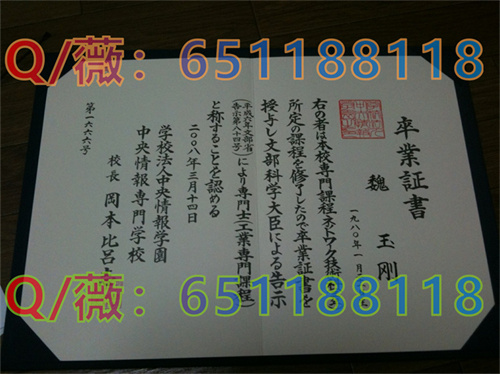 Q/薇：651188118
卒業証書
魏 玉剛
一九八〇年一月
右の者は本校専門課程ネットワーク技術
所定の課程を修了したので卒業証書を
授与し文部科学大臣による告示
(平成六年文部省告示第八十四号)により専門士(工業専門課程)
と称することを認める
二〇〇八年三月十四日
学校法人中央情報学園
中央情報専門学校
校長 岡本比呂
第一六六六号
Q/薇：651188118